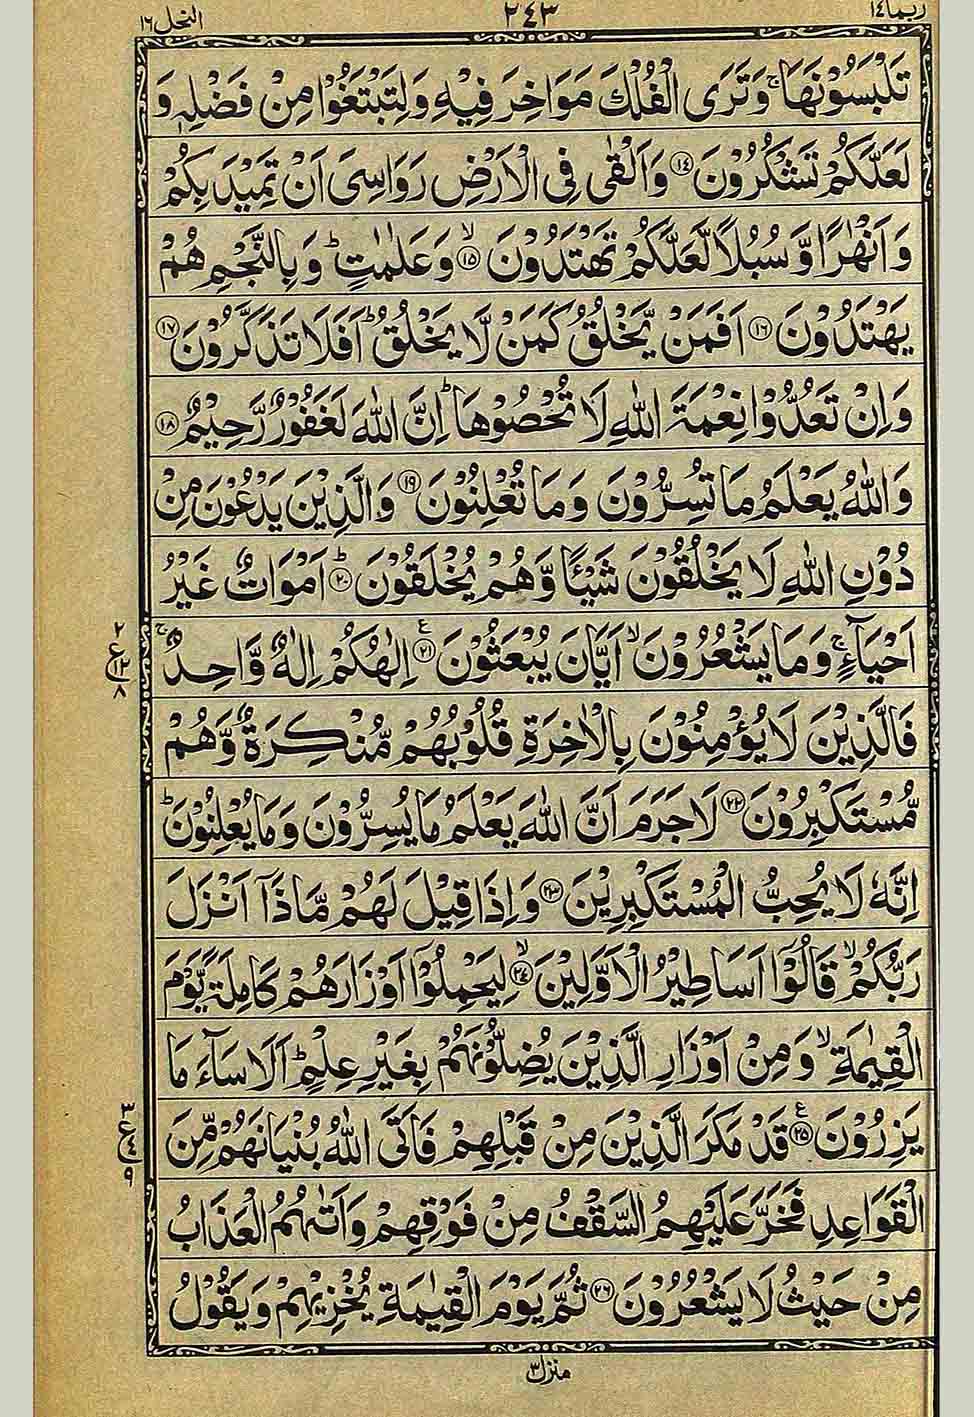 ربما ١٤
٢٤٣
النحل ١٦
تَلْبَسُوْنَهَا ۚ وَتَرَى الْفُلْكَ مَوَاخِرَ فِيْهِ وَلِتَبْتَغُوْا مِنْ فَضْلِهٖ وَ
لَعَلَّكُمْ تَشْكُرُوْنَ ﴿١٤﴾ وَاَلْقٰى فِى الْاَرْضِ رَوَاسِىَ اَنْ تَمِيْدَ بِكُمْ
وَاَنْهٰرًا وَّسُبُلًا لَّعَلَّكُمْ تَهْتَدُوْنَ ۙ﴿١٥﴾ وَعَلٰمٰتٍ ؕ وَبِالنَّجْمِ هُمْ
يَهْتَدُوْنَ ﴿١٦﴾ اَفَمَنْ يَّخْلُقُ كَمَنْ لَّا يَخْلُقُ ؕ اَفَلَا تَذَكَّرُوْنَ ﴿١٧﴾
وَاِنْ تَعُدُّوْا نِعْمَةَ اللّٰهِ لَا تُحْصُوْهَا ؕ اِنَّ اللّٰهَ لَغَفُوْرٌ رَّحِيْمٌ ﴿١٨﴾
وَاللّٰهُ يَعْلَمُ مَا تُسِرُّوْنَ وَمَا تُعْلِنُوْنَ ﴿١٩﴾ وَالَّذِيْنَ يَدْعُوْنَ مِنْ
دُوْنِ اللّٰهِ لَا يَخْلُقُوْنَ شَيْـًٔا وَّهُمْ يُخْلَقُوْنَ ؕ﴿٢٠﴾ اَمْوَاتٌ غَيْرُ
اَحْيَآءٍ ۚ وَمَا يَشْعُرُوْنَ ۙ اَيَّانَ يُبْعَثُوْنَ ﴿٢١﴾ ع اِلٰهُكُمْ اِلٰهٌ وَّاحِدٌ ۚ
٢ ع ١٢ ٨
فَالَّذِيْنَ لَا يُؤْمِنُوْنَ بِالْاٰخِرَةِ قُلُوْبُهُمْ مُّنْكِرَةٌ وَّهُمْ
مُّسْتَكْبِرُوْنَ ﴿٢٢﴾ لَا جَرَمَ اَنَّ اللّٰهَ يَعْلَمُ مَا يُسِرُّوْنَ وَمَا يُعْلِنُوْنَ ؕ
اِنَّهٗ لَا يُحِبُّ الْمُسْتَكْبِرِيْنَ ﴿٢٣﴾ وَاِذَا قِيْلَ لَهُمْ مَّاذَآ اَنْزَلَ
رَبُّكُمْ ۙ قَالُوْٓا اَسَاطِيْرُ الْاَوَّلِيْنَ ۙ﴿٢٤﴾ لِيَحْمِلُوْٓا اَوْزَارَهُمْ كَامِلَةً يَّوْمَ
الْقِيٰمَةِ ۙ وَمِنْ اَوْزَارِ الَّذِيْنَ يُضِلُّوْنَهُمْ بِغَيْرِ عِلْمٍ ؕ اَلَا سَآءَ مَا
يَزِرُوْنَ ﴿٢٥﴾ ع قَدْ مَكَرَ الَّذِيْنَ مِنْ قَبْلِهِمْ فَاَتَى اللّٰهُ بُنْيَانَهُمْ مِّنَ
٣ ع ٤ ٩
الْقَوَاعِدِ فَخَرَّ عَلَيْهِمُ السَّقْفُ مِنْ فَوْقِهِمْ وَاَتٰىهُمُ الْعَذَابُ
مِنْ حَيْثُ لَا يَشْعُرُوْنَ ﴿٢٦﴾ ثُمَّ يَوْمَ الْقِيٰمَةِ يُخْزِيْهِمْ وَيَقُوْلُ
منزل ٣